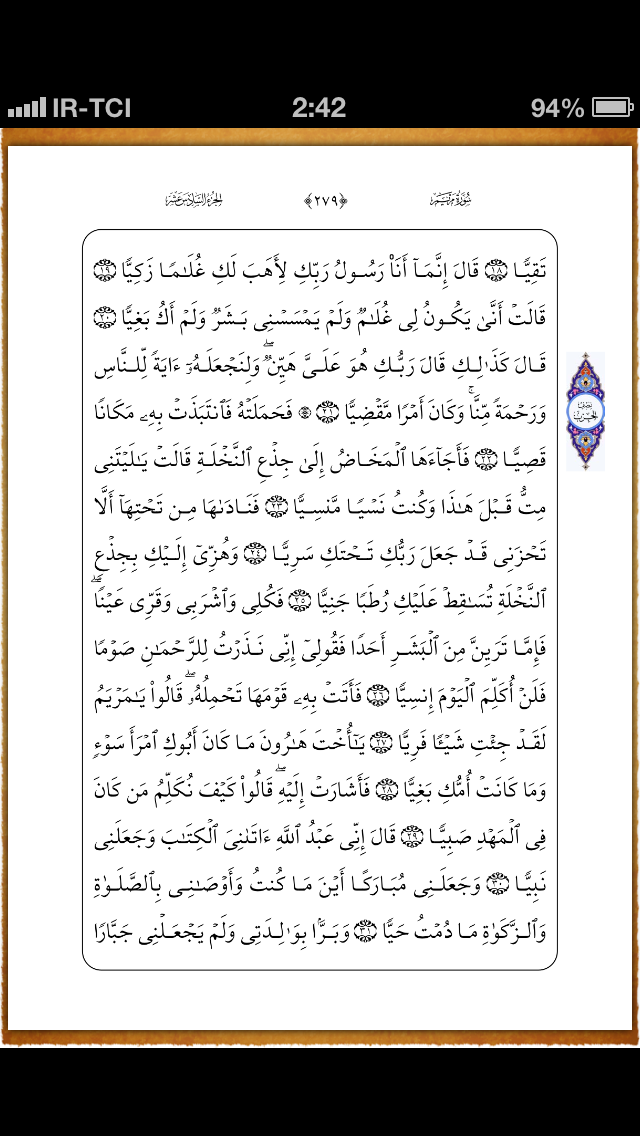 IR-TCI 2:42 94%
سُورَةُ مَرْيَمَ ﴿٢٧٩﴾ الجُزْءُ السَّادِسَ عَشَرَ
تَقِيًّا ١٨ قَالَ إِنَّمَآ أَنَا۠ رَسُولُ رَبِّكِ لِأَهَبَ لَكِ غُلَـٰمًا زَكِيًّا ١٩
قَالَتْ أَنَّىٰ يَكُونُ لِى غُلَـٰمٌ وَلَمْ يَمْسَسْنِى بَشَرٌ وَلَمْ أَكُ بَغِيًّا ٢٠
قَالَ كَذَٰلِكِ قَالَ رَبُّكِ هُوَ عَلَىَّ هَيِّنٌ ۖ وَلِنَجْعَلَهُۥٓ ءَايَةً لِّلنَّاسِ
وَرَحْمَةً مِّنَّا ۚ وَكَانَ أَمْرًا مَّقْضِيًّا ٢١ ۞ فَحَمَلَتْهُ فَٱنتَبَذَتْ بِهِۦ مَكَانًا
نِصْفُ الحِزْب
قَصِيًّا ٢٢ فَأَجَآءَهَا ٱلْمَخَاضُ إِلَىٰ جِذْعِ ٱلنَّخْلَةِ قَالَتْ يَـٰلَيْتَنِى
مِتُّ قَبْلَ هَـٰذَا وَكُنتُ نَسْيًا مَّنسِيًّا ٢٣ فَنَادَىٰهَا مِن تَحْتِهَآ أَلَّا
تَحْزَنِى قَدْ جَعَلَ رَبُّكِ تَحْتَكِ سَرِيًّا ٢٤ وَهُزِّىٓ إِلَيْكِ بِجِذْعِ
ٱلنَّخْلَةِ تُسَـٰقِطْ عَلَيْكِ رُطَبًا جَنِيًّا ٢٥ فَكُلِى وَٱشْرَبِى وَقَرِّى عَيْنًا ۖ
فَإِمَّا تَرَيِنَّ مِنَ ٱلْبَشَرِ أَحَدًا فَقُولِىٓ إِنِّى نَذَرْتُ لِلرَّحْمَـٰنِ صَوْمًا
فَلَنْ أُكَلِّمَ ٱلْيَوْمَ إِنسِيًّا ٢٦ فَأَتَتْ بِهِۦ قَوْمَهَا تَحْمِلُهُۥ ۖ قَالُوا۟ يَـٰمَرْيَمُ
لَقَدْ جِئْتِ شَيْـًٔا فَرِيًّا ٢٧ يَـٰٓأُخْتَ هَـٰرُونَ مَا كَانَ أَبُوكِ ٱمْرَأَ سَوْءٍ
وَمَا كَانَتْ أُمُّكِ بَغِيًّا ٢٨ فَأَشَارَتْ إِلَيْهِ ۖ قَالُوا۟ كَيْفَ نُكَلِّمُ مَن كَانَ
فِى ٱلْمَهْدِ صَبِيًّا ٢٩ قَالَ إِنِّى عَبْدُ ٱللَّهِ ءَاتَىٰنِىَ ٱلْكِتَـٰبَ وَجَعَلَنِى
نَبِيًّا ٣٠ وَجَعَلَنِى مُبَارَكًا أَيْنَ مَا كُنتُ وَأَوْصَـٰنِى بِٱلصَّلَوٰةِ
وَٱلزَّكَوٰةِ مَا دُمْتُ حَيًّا ٣١ وَبَرًّۢا بِوَٰلِدَتِى وَلَمْ يَجْعَلْنِى جَبَّارًا